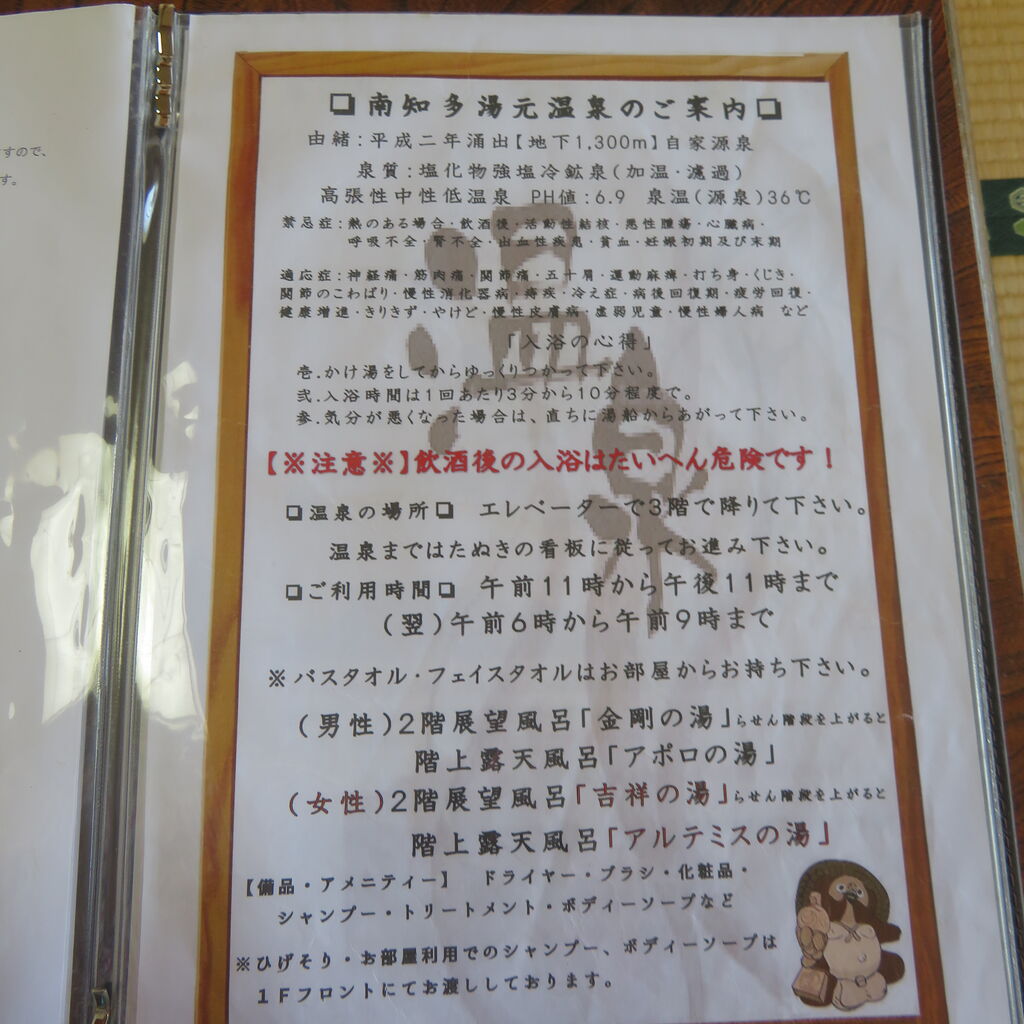 すので、
す。
❏南知多湯元温泉のご案内❏
由緒：平成二年涌出【地下1,300m】自家源泉
泉質：塩化物強塩冷鉱泉（加温・濾過）
高張性中性低温泉　PH値：6.9　泉温（源泉）36℃
禁忌症：熱のある場合・飲酒後・活動性結核・悪性腫瘍・心臓病・
呼吸不全・腎不全・出血性疾患・貧血・妊娠初期及び末期
適応症：神経痛・筋肉痛・関節痛・五十肩・運動麻痺・打ち身・くじき・
関節のこわばり・慢性消化器病・痔疾・冷え症・病後回復期・疲労回復・
健康増進・きりきず・やけど・慢性皮膚病・虚弱児童・慢性婦人病　など
「入浴の心得」
壱.かけ湯をしてからゆっくりつかって下さい。
弐.入浴時間は1回あたり3分から10分程度で。
参.気分が悪くなった場合は、直ちに湯船からあがって下さい。
【※注意※】飲酒後の入浴はたいへん危険です！
❏温泉の場所❏　エレベーターで3階で降りて下さい。
温泉まではたぬきの看板に従ってお進み下さい。
❏ご利用時間❏　午前11時から午後11時まで
（翌）午前6時から午前9時まで
※バスタオル・フェイスタオルはお部屋からお持ち下さい。
（男性）2階展望風呂「金剛の湯」らせん階段を上がると
階上露天風呂「アポロの湯」
（女性）2階展望風呂「吉祥の湯」らせん階段を上がると
階上露天風呂「アルテミスの湯」
【備品・アメニティー】　ドライヤー・ブラシ・化粧品・
シャンプー・トリートメント・ボディーソープなど
※ひげそり・お部屋利用でのシャンプー、ボディーソープは
１Ｆフロントにてお渡ししております。